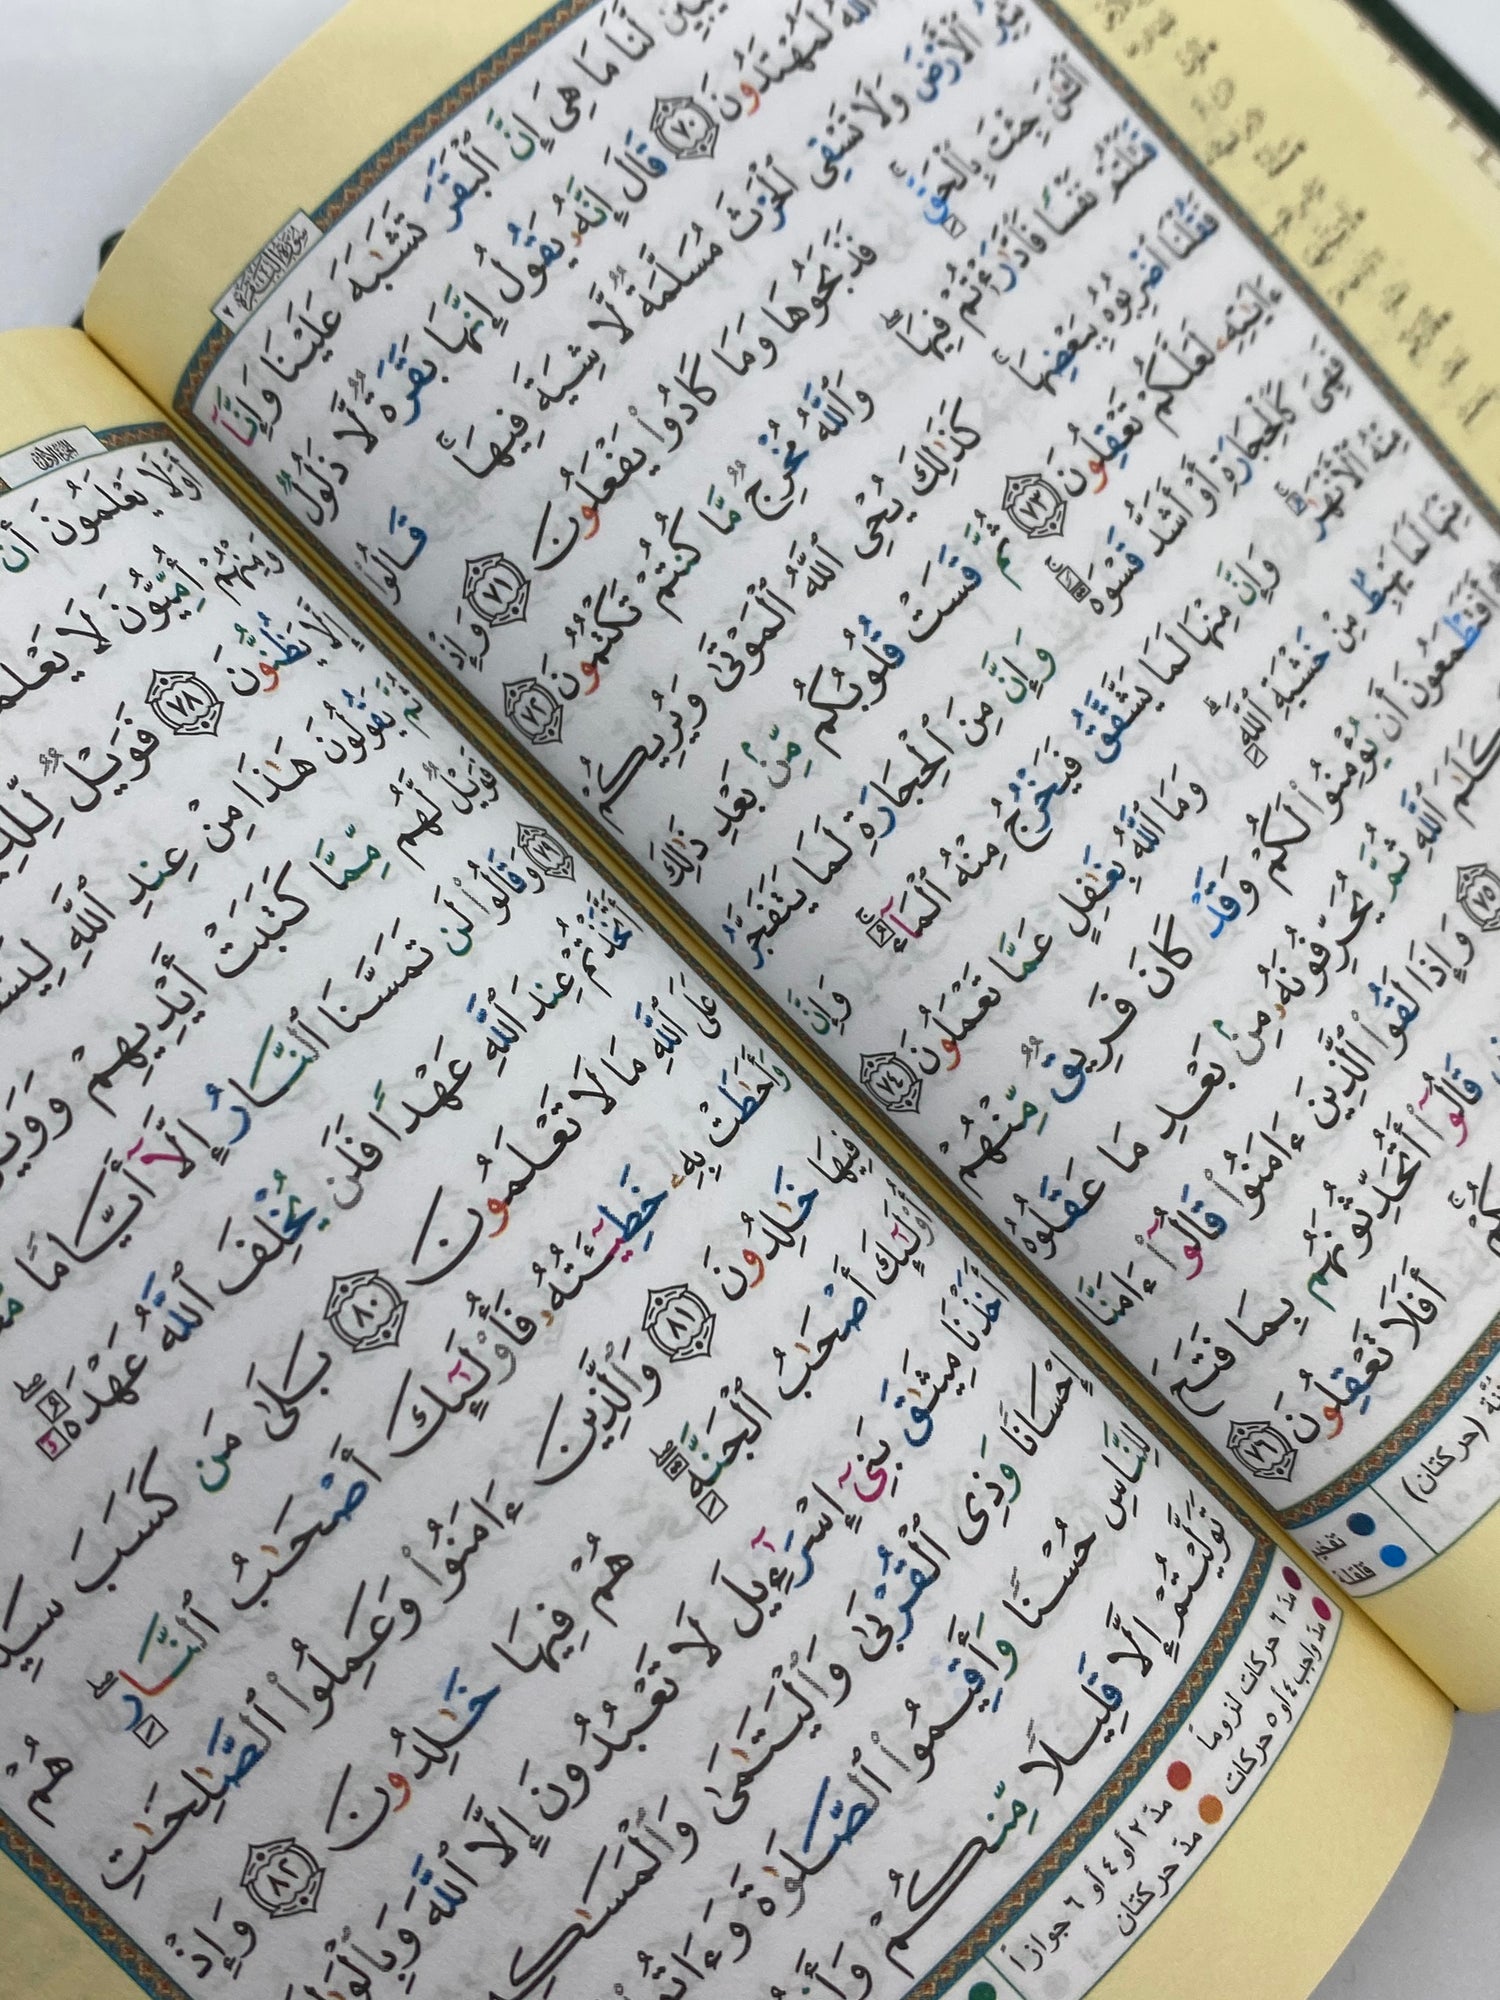 سورة البقرة ٢
لَّنَا مَا هِىَ إِنَّ ٱلْبَقَرَ تَشَٰبَهَ عَلَيْنَا وَإِنَّآ
ٱللَّهُ لَمُهْتَدُونَ ٧٠ قَالَ إِنَّهُۥ يَقُولُ إِنَّهَا بَقَرَةٌ لَّا ذَلُولٌ
تُثِيرُ ٱلْأَرْضَ وَلَا تَسْقِى ٱلْحَرْثَ مُسَلَّمَةٌ لَّا شِيَةَ فِيهَا قَالُوا۟
ٱلْـَٰٔنَ جِئْتَ بِٱلْحَقِّ فَذَبَحُوهَا وَمَا كَادُوا۟ يَفْعَلُونَ ٧١ وَإِذْ
قَتَلْتُمْ نَفْسًا فَٱدَّٰرَْٰٔتُمْ فِيهَا وَٱللَّهُ مُخْرِجٌ مَّا كُنتُمْ تَكْتُمُونَ ٧٢
فَقُلْنَا ٱضْرِبُوهُ بِبَعْضِهَا كَذَٰلِكَ يُحْىِ ٱللَّهُ ٱلْمَوْتَىٰ وَيُرِيكُمْ
ءَايَٰتِهِۦ لَعَلَّكُمْ تَعْقِلُونَ ٧٣ ثُمَّ قَسَتْ قُلُوبُكُم مِّنۢ بَعْدِ ذَٰلِكَ
فَهِىَ كَٱلْحِجَارَةِ أَوْ أَشَدُّ قَسْوَةً وَإِنَّ مِنَ ٱلْحِجَارَةِ لَمَا يَتَفَجَّرُ
مِنْهُ ٱلْأَنْهَٰرُ وَإِنَّ مِنْهَا لَمَا يَشَّقَّقُ فَيَخْرُجُ مِنْهُ ٱلْمَآءُ وَإِنَّ
مِنْهَا لَمَا يَهْبِطُ مِنْ خَشْيَةِ ٱللَّهِ وَمَا ٱللَّهُ بِغَٰفِلٍ عَمَّا تَعْمَلُونَ ٧٤
أَفَتَطْمَعُونَ أَن يُؤْمِنُوا۟ لَكُمْ وَقَدْ كَانَ فَرِيقٌ مِّنْهُمْ
كَلَٰمَ ٱللَّهِ ثُمَّ يُحَرِّفُونَهُۥ مِنۢ بَعْدِ مَا عَقَلُوهُ
٧٥ وَإِذَا لَقُوا۟ ٱلَّذِينَ ءَامَنُوا۟ قَالُوٓا۟ ءَامَنَّا
قَالُوٓا۟ أَتُحَدِّثُونَهُم بِمَا فَتَحَ
أَفَلَا تَعْقِلُونَ ٧٦
(حركتان)
تفخيم
قلقلة
الجزء الأول
أَوَلَا يَعْلَمُونَ أَنَّ
وَمِنْهُمْ أُمِّيُّونَ لَا
إِلَّا يَظُنُّونَ ٧٨ فَوَيْلٌ
ثُمَّ يَقُولُونَ هَٰذَا مِنْ عِندِ ٱللَّهِ
فَوَيْلٌ لَّهُم مِّمَّا كَتَبَتْ أَيْدِيهِمْ
٧٩ وَقَالُوا۟ لَن تَمَسَّنَا ٱلنَّارُ إِلَّآ أَيَّامًا
أَتَّخَذْتُمْ عِندَ ٱللَّهِ عَهْدًا فَلَن يُخْلِفَ ٱللَّهُ عَهْدَهُۥٓ
عَلَى ٱللَّهِ مَا لَا تَعْلَمُونَ ٨٠ بَلَىٰ مَن كَسَبَ
وَأَحَٰطَتْ بِهِۦ خَطِيٓـَٔتُهُۥ فَأُو۟لَٰٓئِكَ أَصْحَٰبُ ٱلنَّارِ هُمْ
فِيهَا خَٰلِدُونَ ٨١ وَٱلَّذِينَ ءَامَنُوا۟ وَعَمِلُوا۟ ٱلصَّٰلِحَٰتِ
أُو۟لَٰٓئِكَ أَصْحَٰبُ ٱلْجَنَّةِ هُمْ فِيهَا خَٰلِدُونَ ٨٢ وَإِذْ
أَخَذْنَا مِيثَٰقَ بَنِىٓ إِسْرَٰٓءِيلَ لَا تَعْبُدُونَ إِلَّا ٱللَّهَ
إِحْسَانًا وَذِى ٱلْقُرْبَىٰ وَٱلْيَتَٰمَىٰ
لِلنَّاسِ حُسْنًا وَأَقِيمُوا۟ ٱلصَّلَوٰةَ
تَوَلَّيْتُمْ إِلَّا قَلِيلًا مِّنكُمْ
مدّ ٦ حركات لزوماً
مدّ واجب ٤ أو ٥ حركات
مدّ ٢ أو ٤ أو ٦ جوازاً
مدّ حركتان